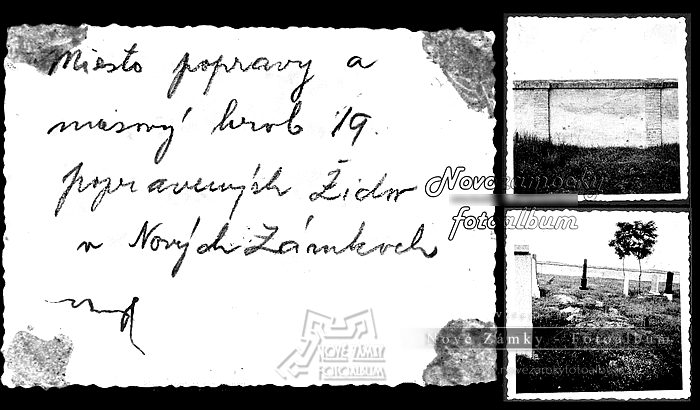 Miesto popravy a
masový hrob 19.
popravených Židov
v Nových Zámkoch
Novozámocký
fotoalbum
NOVÉ ZÁMKY
FOTOALBUM
Nové Zámky - Fotoalbum